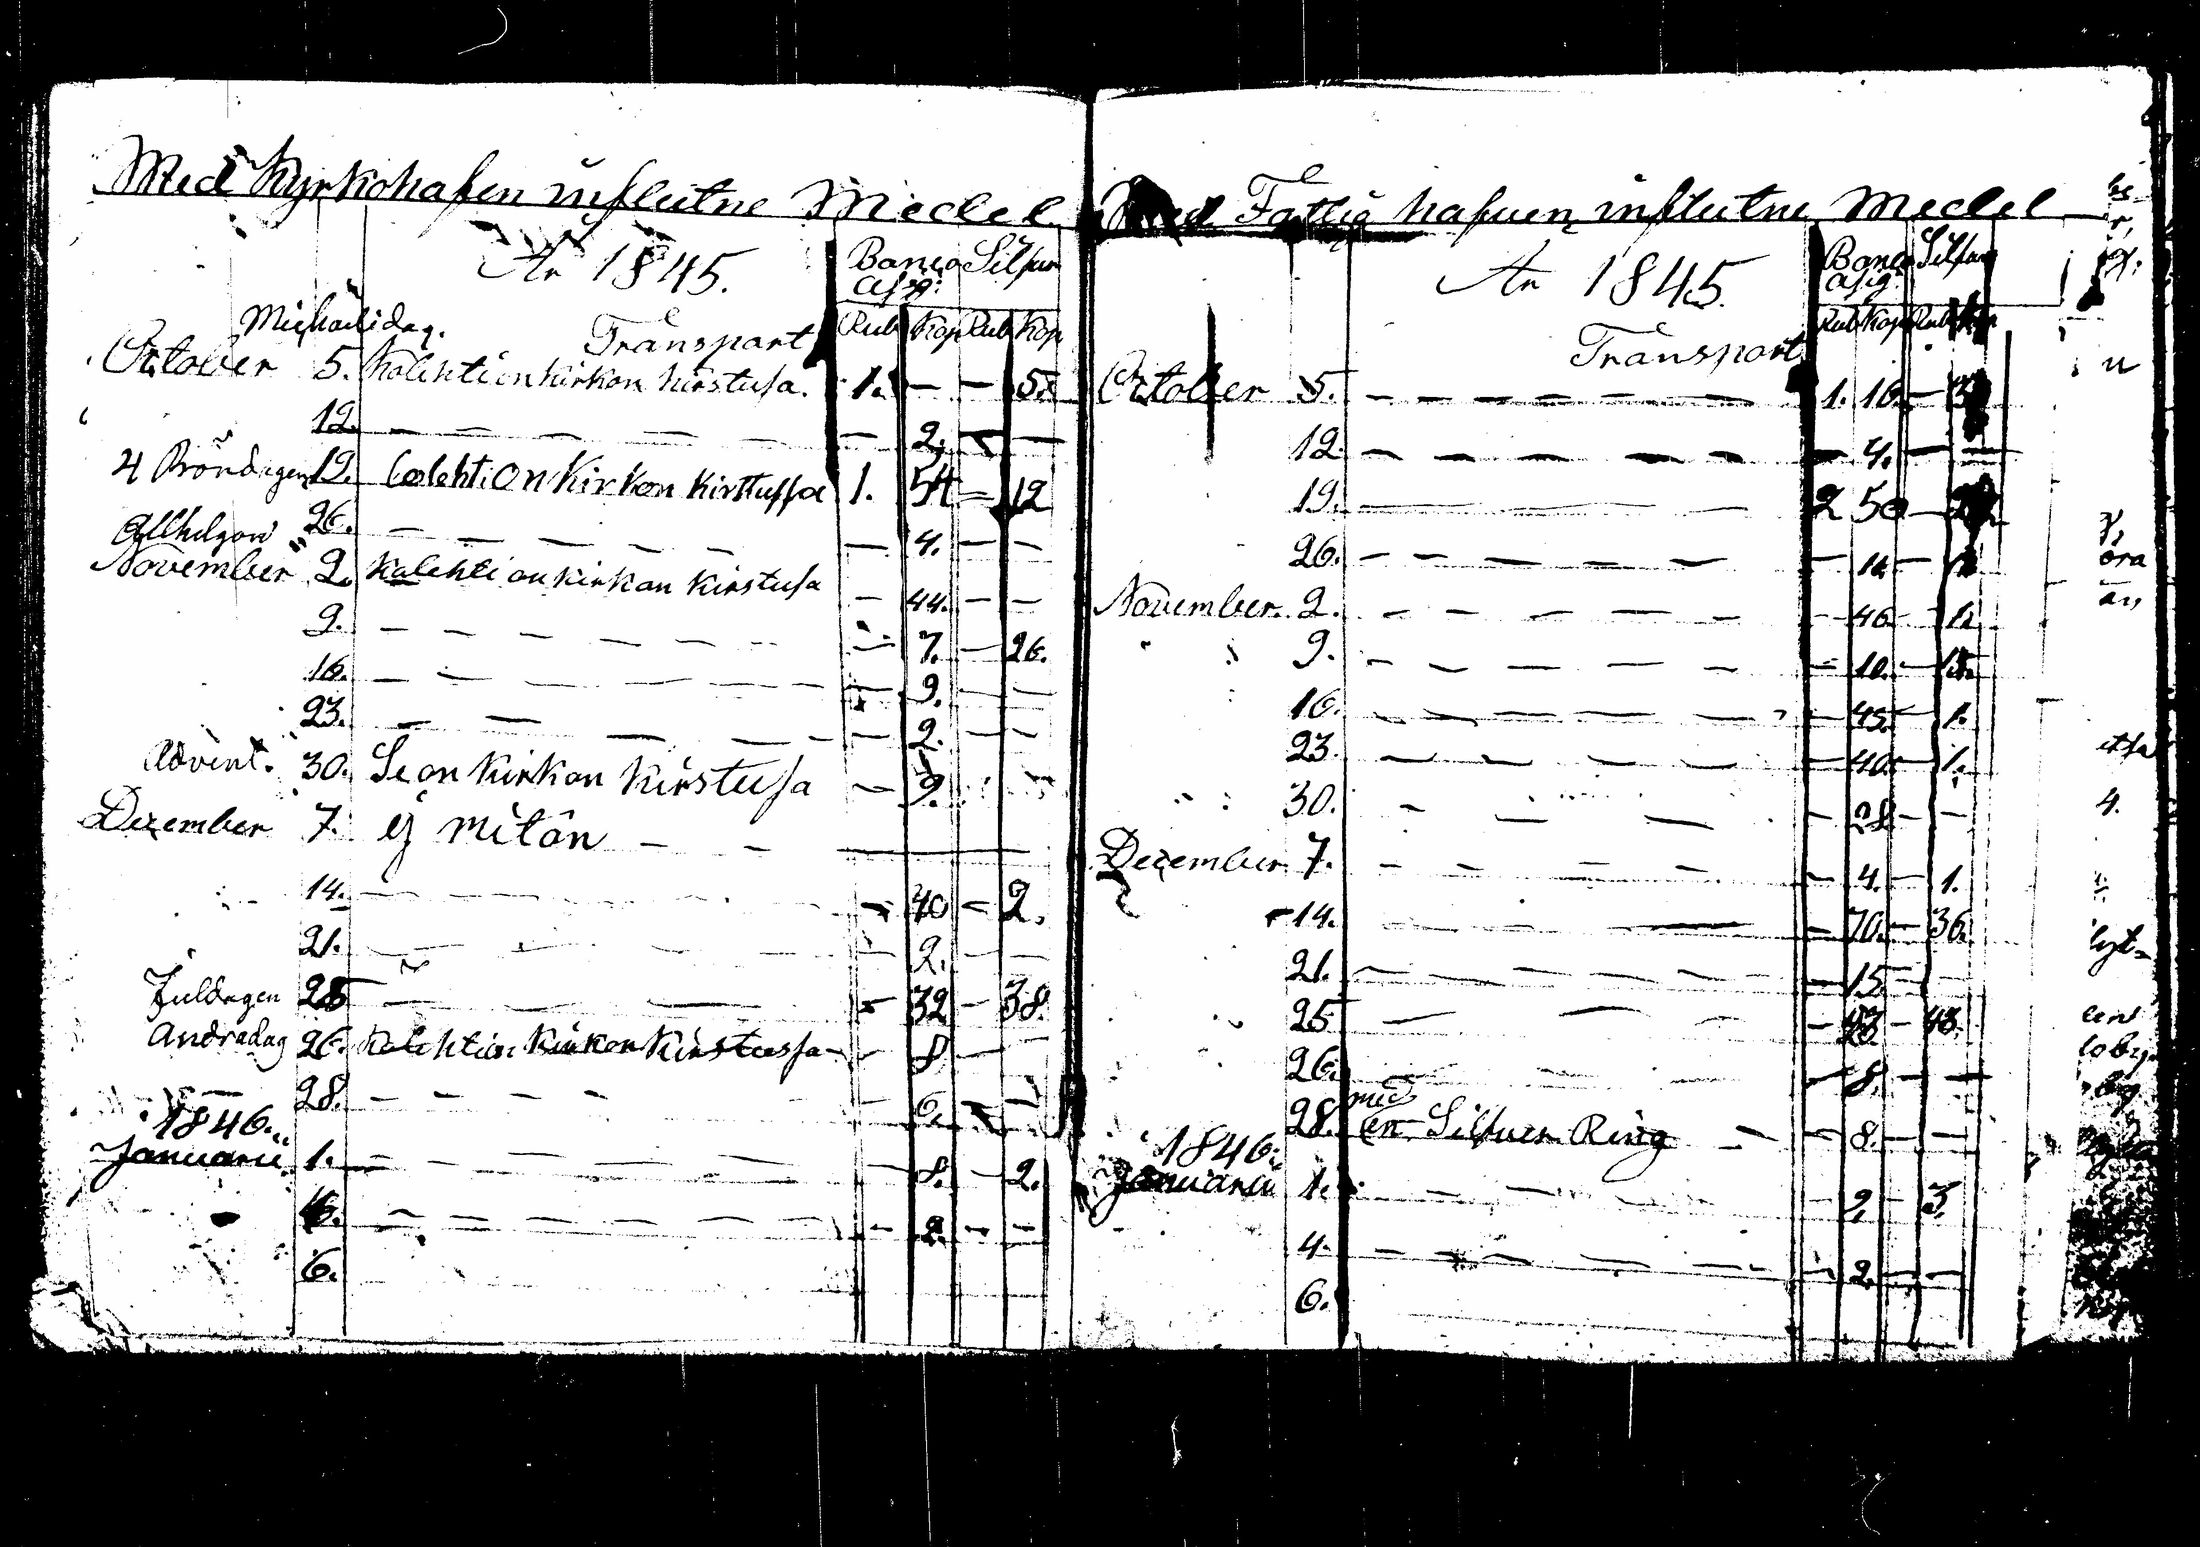 Med Kyrkohafen influtne Medel
År 1845.
Banco Silfver
Asig:
Michaelidag. Transport Rub Kop Rub Kop
October 5. Kolehti on kirkon kirstusa. 1. — — 5.
12. — — — — — — 2. — —
4 Böndagen 19. Colehti on Kirkon kirstussa 1. 54 — 12
26. — — — — — — 4. — —
Allhelgon
November 2. Kolehti on kirkon kirstusa — 44. — —
9. — — — — — — 7. — 26.
16. — — — — — — 9. — —
23. — — — — — — 2. — —
Advent. 30. Se on kirkon kirstusa — 9.
Dezember 7. ej mitän — —
14. — — — — — 40 — 2.
21. — — — — — 2. — —
Juldagen 25 — — — 32 — 38.
Andradag 26. Kolehti on kirkon kirstussa — — 8 —
28. — — — — — 6. — —
1846.
Januarii 1. — — — — — 8. — 2.
6. — — — — — — 2. — —
6.
Med Fattig hafven influtne Medel
År 1845.
Banco Silfver
Asig.
Transport Rub Kop Rub Kop
October 5. — — — — — — 1. 10. — 3
12. — — — — — — 4. — —
19. — — — — 2 50 —
26. — — — — — —
November. 2. — — — — — 46 — 1.
9. — — — — — — 10. — 15.
16. — — — — — — 45. — 1.
23. — — — — — — 40. — 1.
30. — — — — 28 — —
December 7. — — — — — 4. — 1.
14. — — — — — 70. — 36.
21. — — — — — — 15. — —
25 — — — —
26. — — — — — 8. — —
med
28. en Silfver Ring — — 8. — —
1846.
Januarii 1. — — — — — 2. — 3.
4. — — — — — — 2. — —
6.